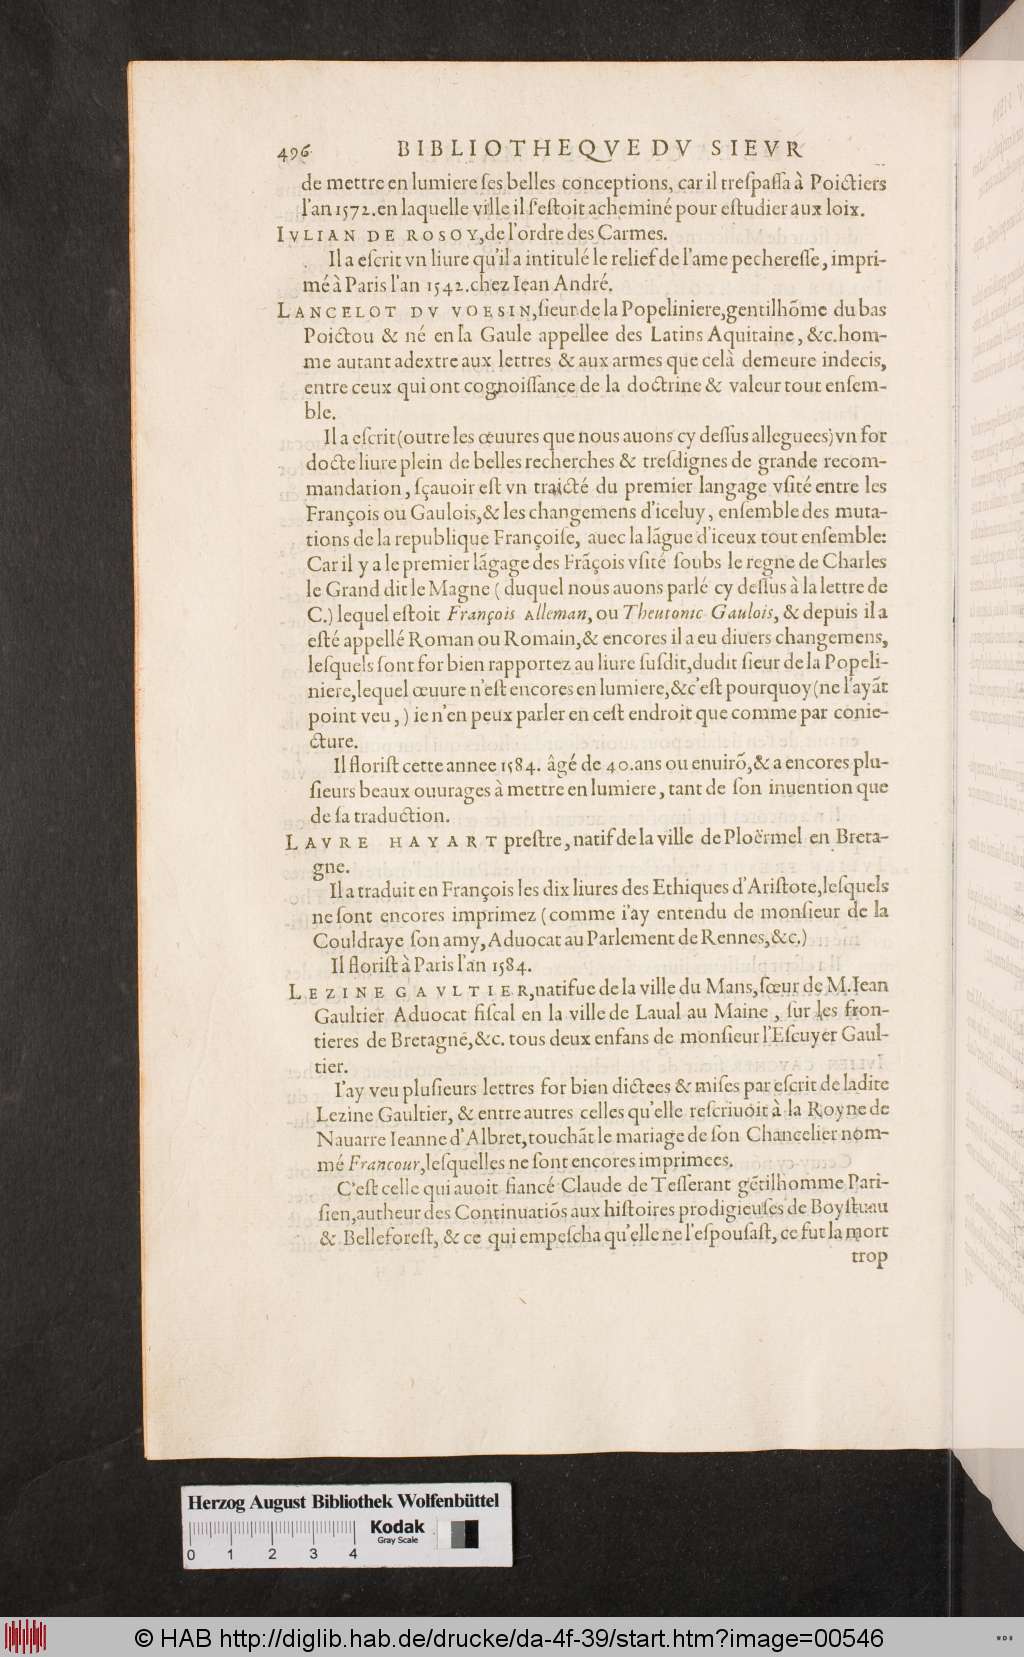 496 BIBLIOTHEQVE DV SIEVR
de mettre en lumiere ſes belles conceptions, car il treſpaſſa à Poictiers
l'an 1572. en laquelle ville il ſ'eſtoit acheminé pour eſtudier aux loix.
IVLIAN DE ROSOY, de l'ordre des Carmes.
Il a eſcrit vn liure qu'il a intitulé le relief de l'ame pechereſſe, impri-
mé à Paris l'an 1542. chez Iean André.
LANCELOT DV VOESIN, ſieur de la Popeliniere, gentilhõme du bas
Poictou & né en la Gaule appellee des Latins Aquitaine, &c. hom-
me autant adextre aux lettres & aux armes que celà demeure indecis,
entre ceux qui ont cognoiſſance de la doctrine & valeur tout enſem-
ble.
Il a eſcrit (outre les œuures que nous auons cy deſſus alleguees) vn for
docte liure plein de belles recherches & treſdignes de grande recom-
mandation, ſçauoir eſt vn traicté du premier langage vſité entre les
François ou Gaulois, & les changemens d'iceluy, enſemble des muta-
tions de la republique Françoiſe, auec la lãgue d'iceux tout enſemble:
Car il y a le premier lãgage des Frãçois vſité ſoubs le regne de Charles
le Grand dit le Magne ( duquel nous auons parlé cy deſſus à la lettre de
C.) lequel eſtoit François Alleman, ou Theutonic Gaulois, & depuis il a
eſté appellé Roman ou Romain, & encores il a eu diuers changemens,
leſquels ſont for bien rapportez au liure ſuſdit, dudit ſieur de la Popeli-
niere, lequel œuure n'eſt encores en lumiere, & c'eſt pourquoy (ne l'ayãt
point veu, ) ie n'en peux parler en ceſt endroit que comme par conie-
cture.
Il floriſt cette annee 1584. âgé de 40. ans ou enuirõ, & a encores plu-
ſieurs beaux ouurages à mettre en lumiere, tant de ſon inuention que
de ſa traduction.
LAVRE HAYART preſtre, natif de la ville de Ploërmel en Breta-
gne.
Il a traduit en François les dix liures des Ethiques d'Ariſtote, leſquels
ne ſont encores imprimez (comme i'ay entendu de monſieur de la
Couldraye ſon amy, Aduocat au Parlement de Rennes, &c.)
Il floriſt à Paris l'an 1584.
LEZINE GAVLTIER, natifue de la ville du Mans, ſœur de M. Iean
Gaultier Aduocat fiſcal en la ville de Laual au Maine, ſur les fron-
tieres de Bretagne, &c. tous deux enfans de monſieur l'Eſcuyer Gaul-
tier.
I'ay veu pluſieurs lettres for bien dictees & miſes par eſcrit de ladite
Lezine Gaultier, & entre autres celles qu'elle reſcriuoit à la Royne de
Nauarre Ieanne d'Albret, touchãt le mariage de ſon Chancelier nom-
mé Francour, leſquelles ne ſont encores imprimees.
C'eſt celle qui auoit fiancé Claude de Teſſerant gẽtilhomme Pari-
ſien, autheur des Continuatiõs aux hiſtoires prodigieuſes de Boyſtuau
& Belleforeſt, & ce qui empeſcha qu'elle ne l'eſpouſaſt, ce fut la mort
trop
Herzog August Bibliothek Wolfenbüttel
Kodak
Gray Scale
0 1 2 3 4
© HAB http://diglib.hab.de/drucke/da-4f-39/start.htm?image=00546